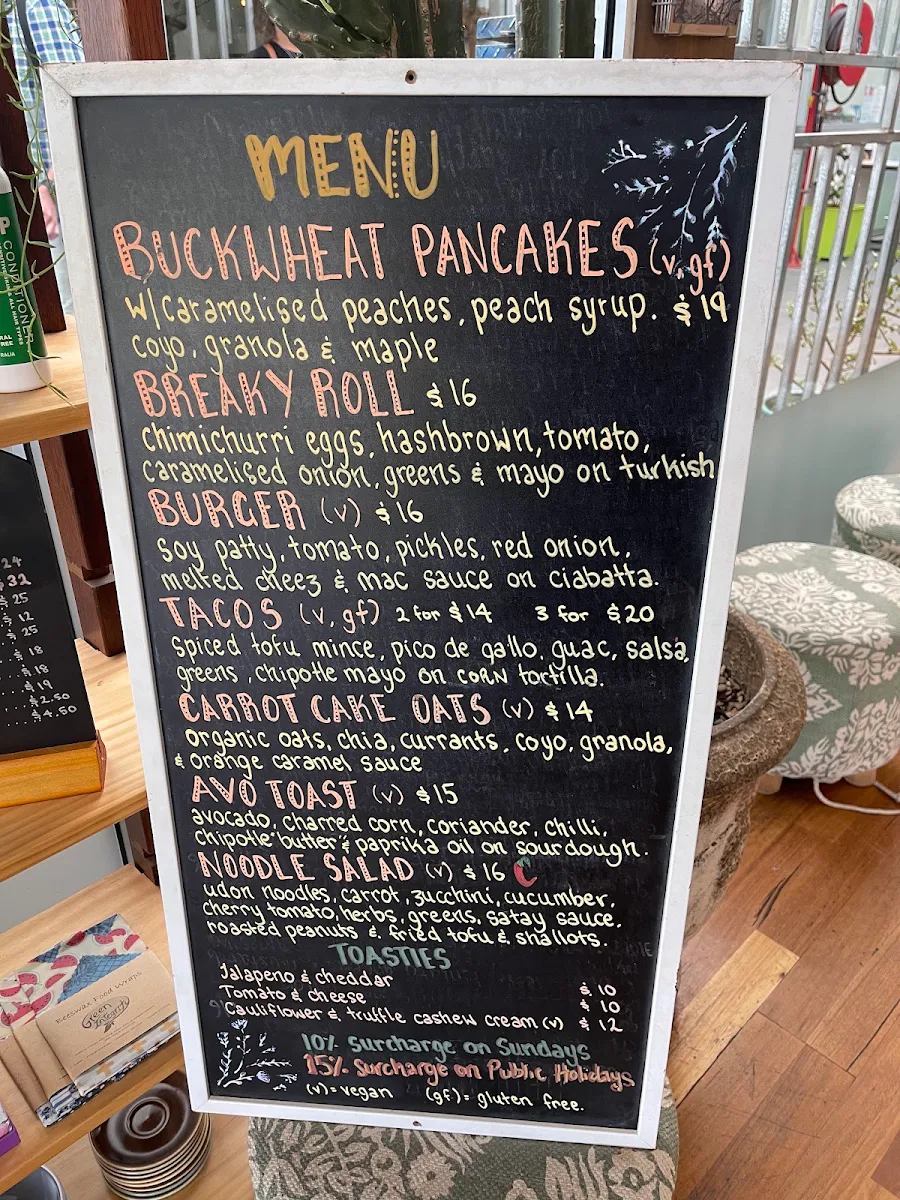 MENU
BUCKWHEAT PANCAKES (v,gf)
w/caramelised peaches, peach syrup. $19
coyo, granola & maple
BREAKY ROLL $16
chimichurri eggs, hashbrown, tomato,
caramelised onion, greens & mayo on turkish
BURGER (v) $16
soy patty, tomato, pickles, red onion,
melted cheez & mac sauce on ciabatta.
TACOS (v, gf) 2 for $14 3 for $20
spiced tofu mince, pico de gallo, guac, salsa,
greens, chipotle mayo on CORN tortilla.
CARROT CAKE OATS (v) $14
organic oats, chia, currants, coyo, granola,
& orange caramel sauce
AVO TOAST (v) $15
avocado, charred corn, coriander, chilli,
chipotle butter & paprika oil on sourdough.
NOODLE SALAD (v) $16
udon noodles, carrot, zucchini, cucumber,
cherry tomato, herbs, greens, satay sauce,
roasted peanuts & fried tofu & shallots.
TOASTIES
Jalapeno & cheddar $10
Tomato & cheese $10
Cauliflower & truffle cashew cream (v) $12
10% surcharge on Sundays
15% surcharge on Public Holidays
(v)=vegan (gf)= gluten free.
P
CONDITIONER
ALL HAIR TYPES
24
$32
$25
$12
$25
$18
$18
$19
$2.50
$4.50
Beeswax Food Wraps
Green